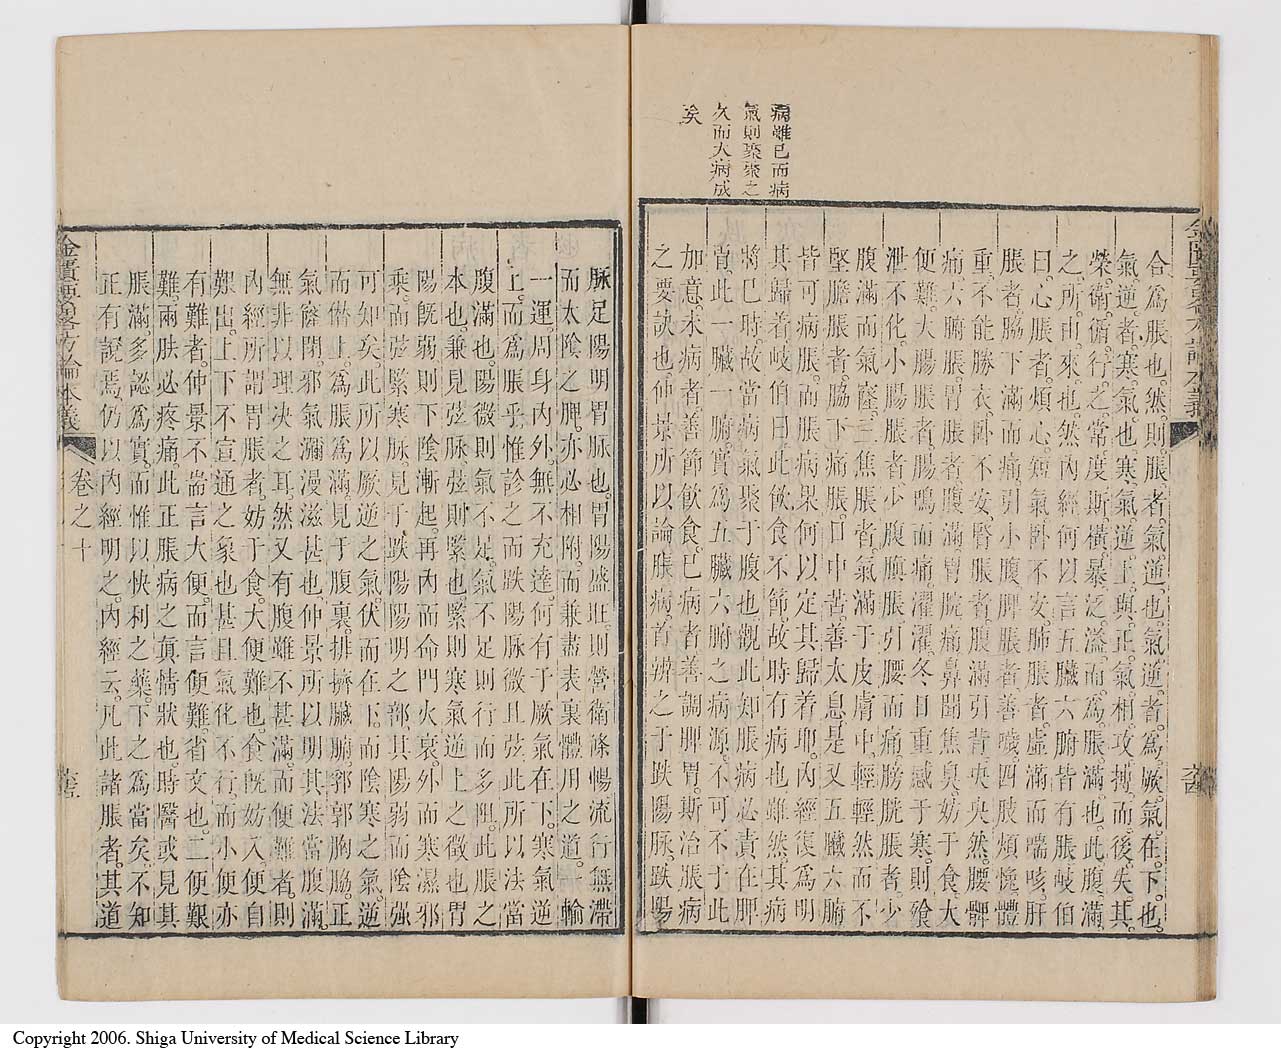 病雖已而病
氣則聚聚之
久而大病成
矣
合爲脹也。然則。脹者。氣逆也。氣逆者。爲厥氣在下也。
氣逆者。寒氣也。寒氣逆上。與正氣相攻搏。而後失其
榮衛俯行之常度。斯橫暴泛溢。而爲脹滿也。此腹滿
之所由來也。然內經何以言五臟六腑皆有脹。岐伯
曰。心脹者。煩心。短氣。臥不安。肺脹者。虛滿而喘咳。肝
脹者。脇下滿而痛。引小腹。脾脹者。善噦。四肢煩悗。體
重不能勝衣。臥不安。腎脹者。腹滿引背。央央然。腰髀
痛。六腑脹。胃脹者。腹滿。胃脘痛。鼻聞焦臭。妨于食。大
便難。大腸脹者。腸鳴而痛。濯濯。冬日重感于寒。則飧
泄不化。小腸脹者。少腹䐜脹。引腰而痛。膀胱脹者。少
腹滿而氣癃。三焦脹者。氣滿于皮膚中。輕輕然而不
堅。膽脹者。脇下痛脹。口中苦。善太息。是又五臟六腑
皆可病脹。而脹病果何以定其歸着耶。內經復爲明
其歸着。岐伯曰。此飲食不節。故時有病也。雖然其病
將已時。故當病。氣聚于腹也。觀此知脹病必責在脾
胃。此一臟一腑。實爲五臟六腑之病源。不可不于此
加意。未病者。善節飲食。已病者。善調脾胃。斯治脹病
之要訣也。仲景所以論脹病。首辨之于趺陽脉。趺陽
金匱要畧方論本義
脉。足陽明胃脉也。胃陽盛旺。則營衛條暢。流行無滯。
而太陰之脾。亦必相附。而兼盡表裏體用之道。一輸
一運。周身內外。無不充達。何有于厥氣在下。寒氣逆
上。而爲脹乎。惟診之而趺陽脉微且弦。此所以法當
腹滿也。陽微則氣不足。氣不足則行而多阻。此脹之
本也。兼見弦脉。弦則緊也。緊則寒氣逆上之徵也。胃
陽旣弱。則下陰漸起。再內而命門火衰。外而寒濕邪
乘。而弦緊寒脉。見于趺陽陽明之部。其陽弱而陰强
可知矣。此所以厥逆之氣伏而在下。而陰寒之氣。逆
而僭上。爲脹爲滿。見于腹裏。排擠臟腑。郭郭胸脇。正
氣窒閉。邪氣瀰漫滋甚也。仲景所以明其法當腹滿。
無非以理决之耳。然又有腹雖不甚滿。而便難者。則
內經所謂胃脹者。妨于食。大便難也。食旣妨入。便自
艱出。上下不宣通之象也。甚且氣化不行。而小便亦
有難者。仲景不耑言大便。而言便難。省文也。二便艱
難。兩胠必疼痛。此正脹病之眞情狀也。時醫或見其
脹滿。多認爲實。而惟以快利之藥。下之爲當矣。不知
正有說焉。仍以內經明之。內經云。凡此諸脹者。其道
金匱要畧方論本義
卷之十
Copyright 2006. Shiga University of Medical Science Library